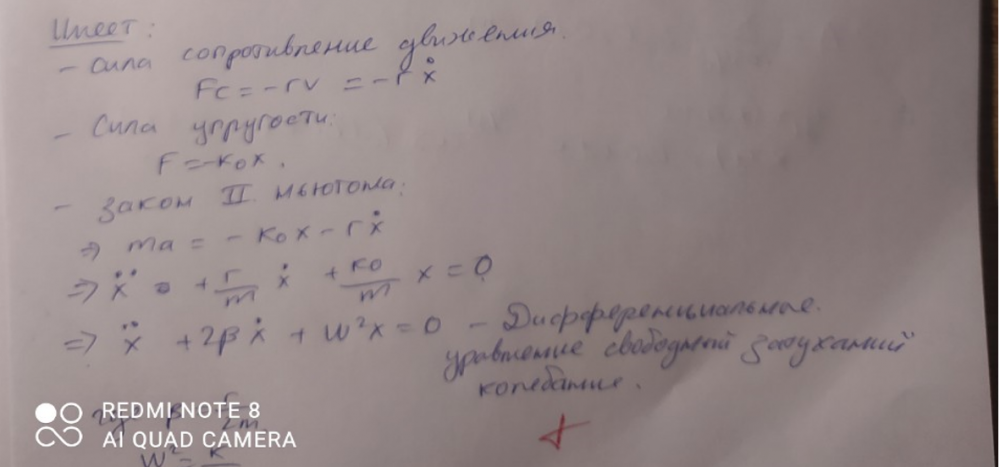 Имеет:
- Сила сопротивление движения.
Fc = -rv = -rẋ
- Сила упругости:
F = -k₀x.
- Закон II Ньютона:
⇒ ma = -k₀x - rẋ
⇒ ẍ + r/m ẋ + k₀/m x = 0
⇒ ẍ + 2βẋ + W²x = 0 - Дифференциальное
уравнение свободный затуханий
колебание.
2m
REDMI NOTE 8
AI QUAD CAMERA
W² = k